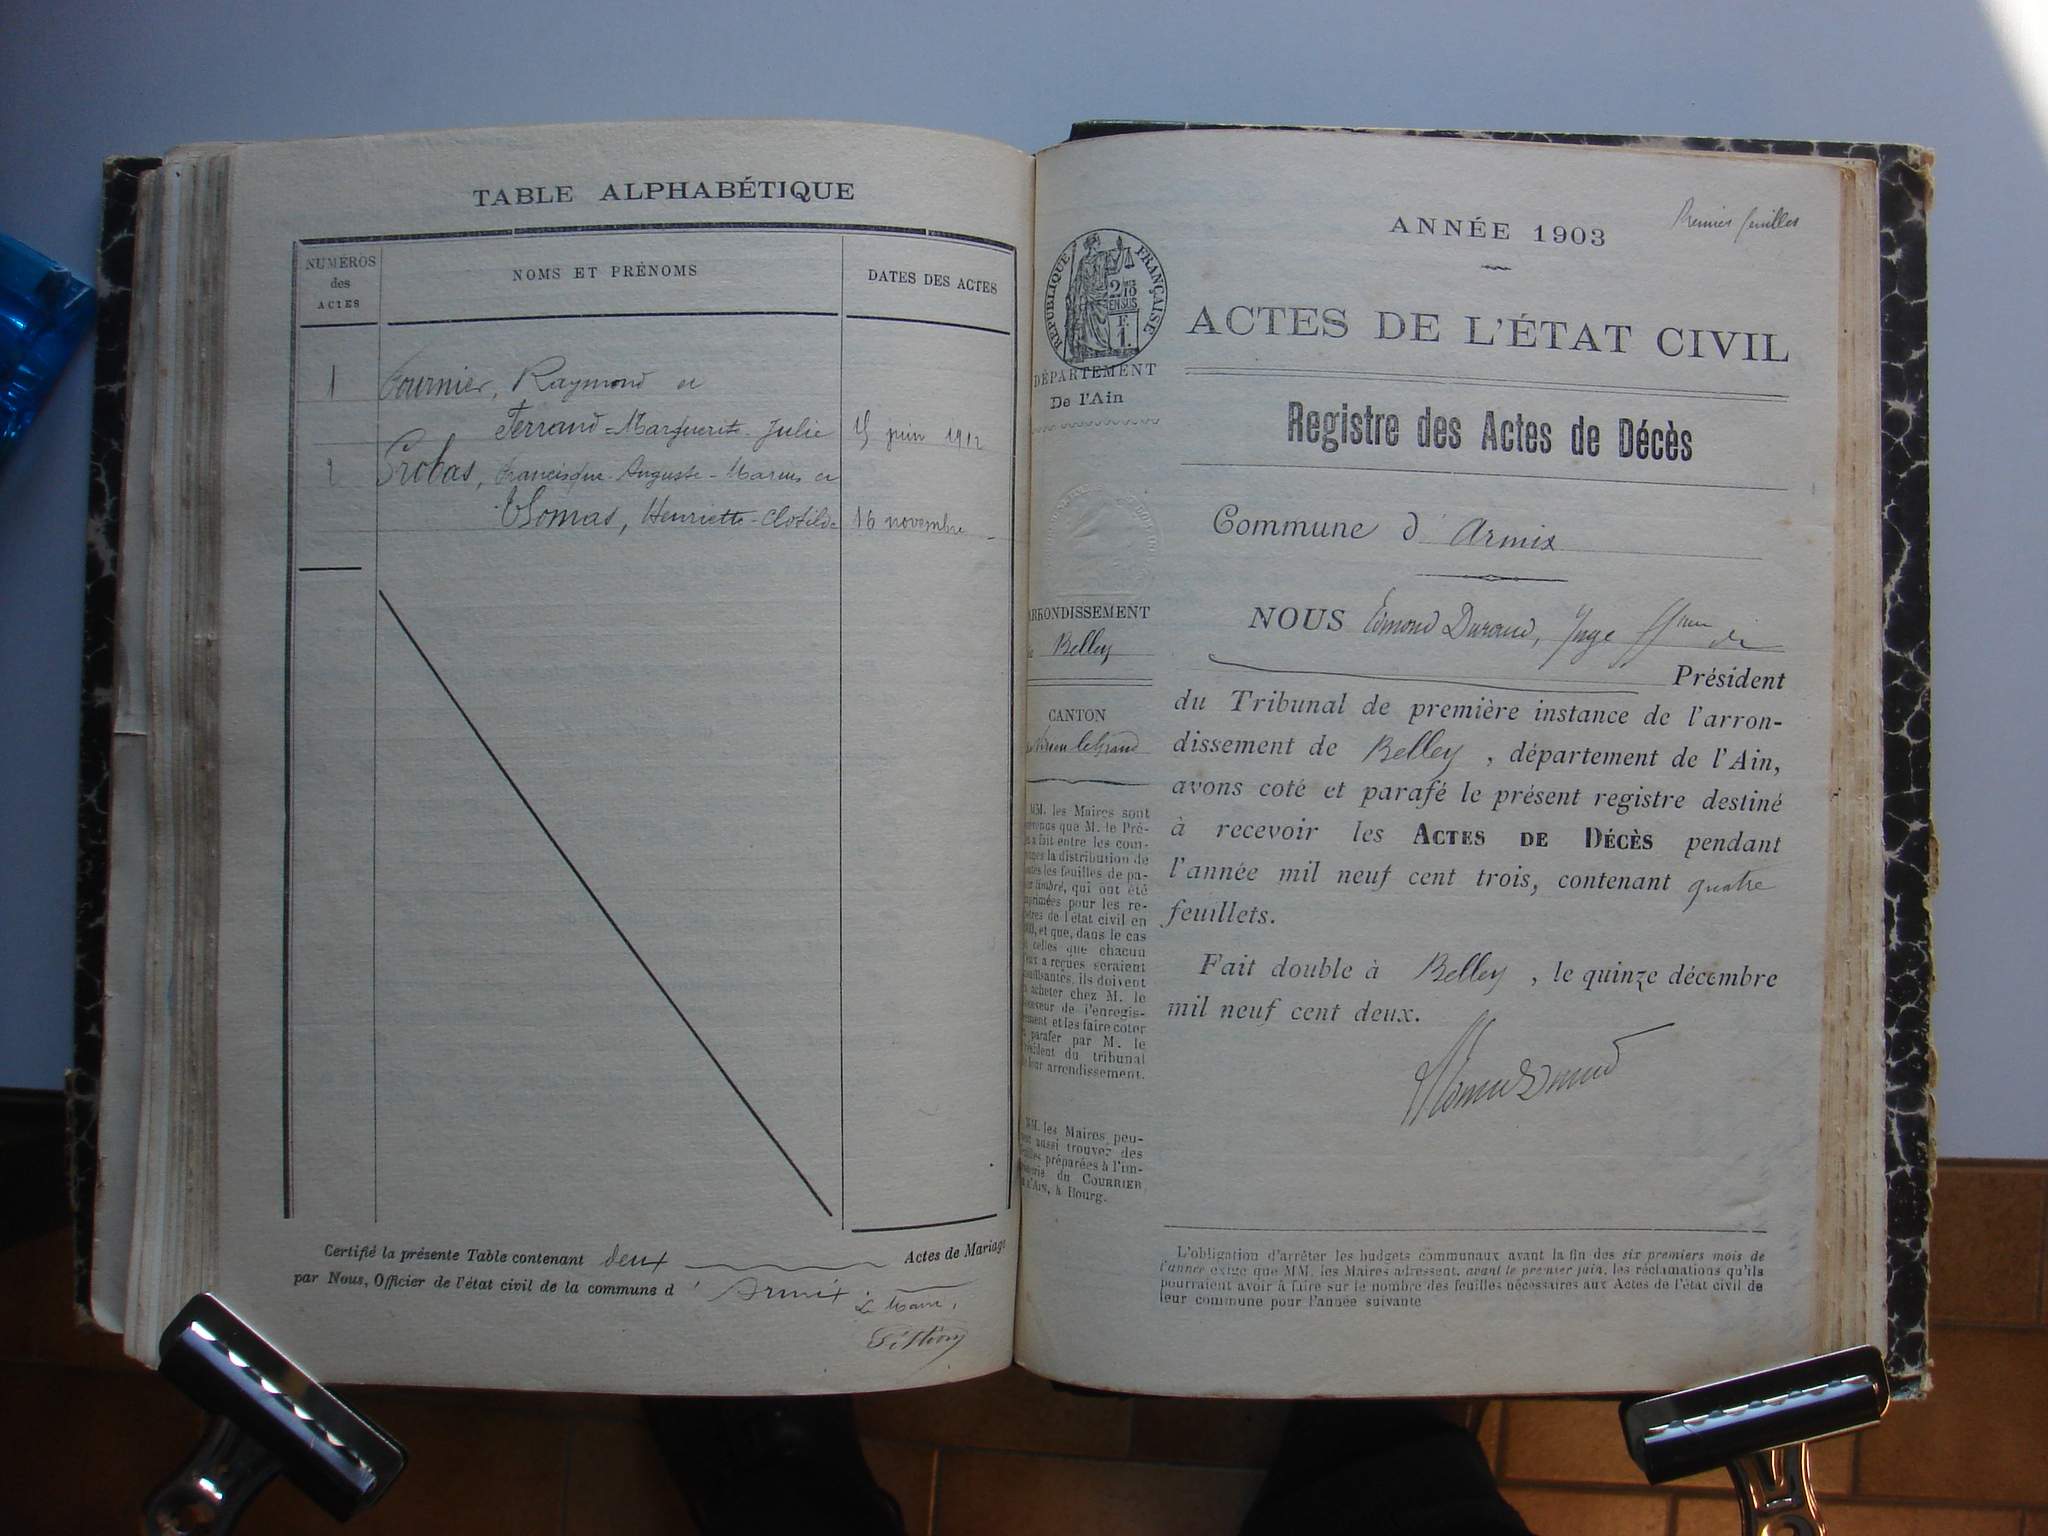 TABLE ALPHABÉTIQUE
NUMÉROS
des
ACTES
NOMS ET PRÉNOMS
DATES DES ACTES
1 Fournier, Raymond et
Ferrand=Marguerite-Julie 15 juin 1912
2 Probas, Francisque-Auguste-Marius et
Thomas, Henriette-Clotilde 16 novembre
Certifié la présente Table contenant deux Actes de Mariage
par Nous, Officier de l'état civil de la commune d' Armix.
Le Maire,
Premier feuillet
ANNÉE 1903
RÉPUBLIQUE FRANÇAISE
ACTES DE L'ÉTAT CIVIL
DÉPARTEMENT
De l'Ain
Registre des Actes de Décès
Commune d' Armix
ARRONDISSEMENT
Belley
CANTON
Virieu le Grand
MM. les Maires sont
que M. le Pré-
fait entre les com-
la distribution de
les feuilles de pa-
timbré, qui ont été
imprimées pour les re-
de l'état civil en
et que, dans le cas
celles que chacun
a reçues seraient
ils doivent
acheter chez M. le
de l'enregis-
et les faire coter
parafer par M. le
du tribunal
leur arrondissement.
MM. les Maires peu-
aussi trouver des
préparées à l'im-
du COURRIER
l'Ain, à Bourg.
NOUS Edmond Durand, Juge
Président
du Tribunal de première instance de l'arron-
dissement de Belley, département de l'Ain,
avons coté et parafé le présent registre destiné
à recevoir les ACTES DE DÉCÈS pendant
l'année mil neuf cent trois, contenant quatre
feuillets.
Fait double à Belley, le quinze décembre
mil neuf cent deux.
L'obligation d'arrêter les budgets communaux avant la fin des six premiers mois de
l'année exige que MM. les Maires adressent, avant le premier juin, les réclamations qu'ils
pourraient avoir à faire sur le nombre des feuilles nécessaires aux Actes de l'état civil de
leur commune pour l'année suivante